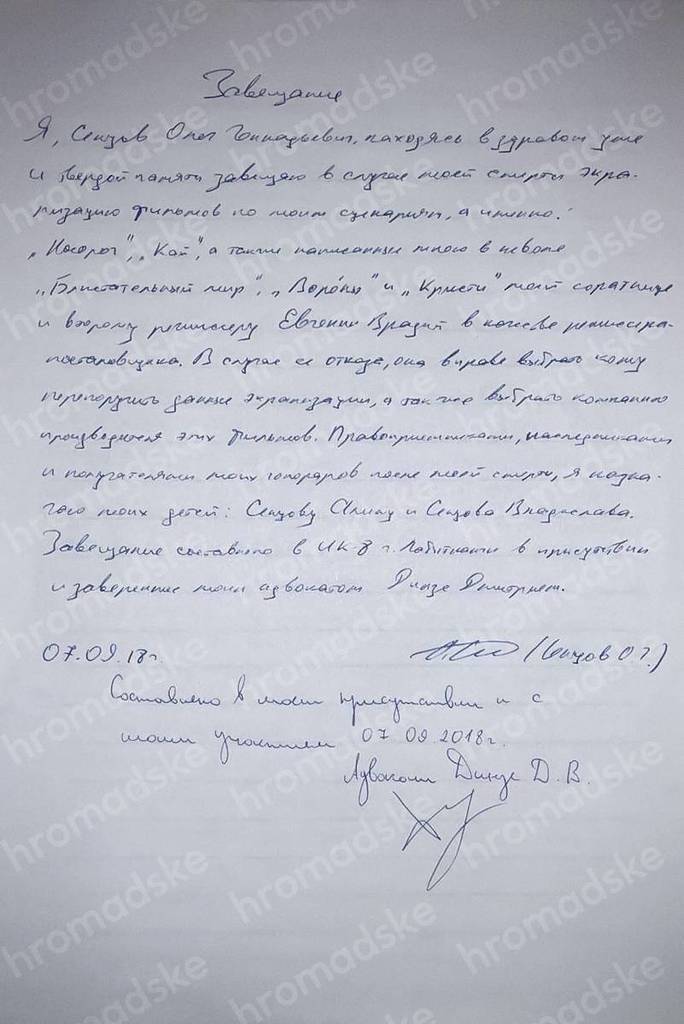 Завещание
Я, Сенцов Олег Геннадьевич, находясь в здравом уме
и твердой памяти завещаю в случае моей смерти экра-
низацию фильмов по моим сценариям, а именно:
„Носорог", „Кай", а также написанные мною в неволе
„Блистательный мир", „Воро́ны" и „Крысти" моей соратнице
и второму режиссеру Евгении Врадий в качестве режиссера-
постановщика. В случае ее отказа, она вправе выбрать кому
перепоручить данные экранизации, а также выбрать компанию
производителя этих фильмов. Правоприемниками, наследниками
и получателями моих гонораров после моей смерти, я назна-
чаю моих детей: Сенцову Алину и Сенцова Владислава.
Завещание составлено в ИК-8 г. Лабытнанги в присутствии
и заверенно моим адвокатом Динзе Дмитрием.
07.09.18г. (Сенцов О Г.)
Составлено в моем присутствии и с
моим участием 07 09 2018г.
Адвокат Динзе Д. В.
hromadske